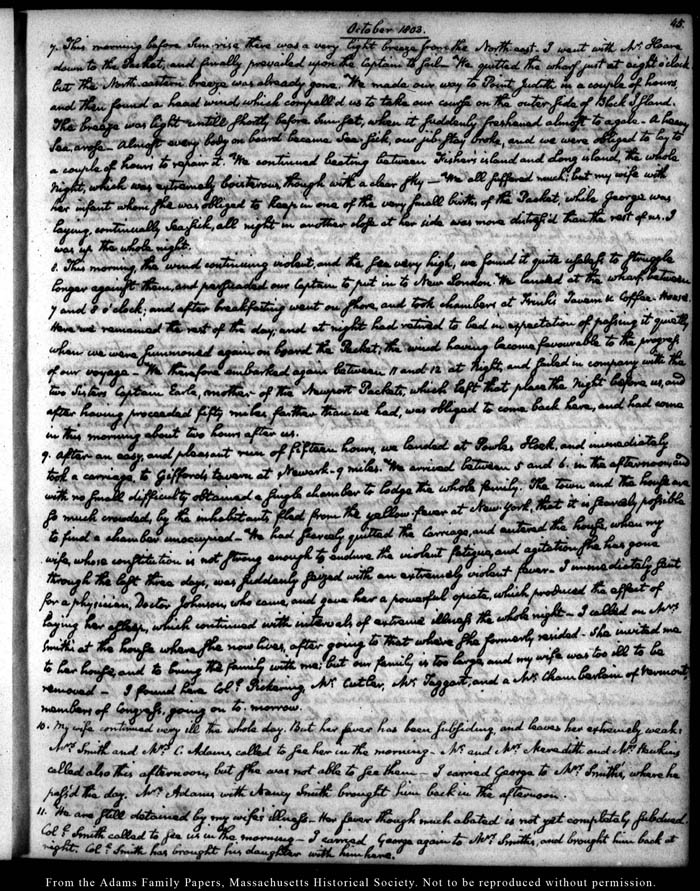 October 1803.
45.
7. This morning before Sun-rise there was a very light breeze from the North east. I went with Mr. Hoare
down to the Packet, and finally prevailed upon the Captain to sail. We quitted the wharf just at eight o'clock
but the North-eastern breeze was already gone. We made our way to Point Judith in a couple of hours,
and then found a head wind which compell'd us to take our course on the outer side of Block Island.
The breeze was light untill shortly before Sun-set, when it suddenly freshened almost to a gale. A heavy
Sea arose. Almost every body on board became Sea-sick, our jib-stay broke, and we were obliged to lay to
a couple of hours to repair it. We continued beating between Fisher's island and Long island, the whole
Night, which was extremely boisterous though with a clear sky — We all suffered much; but my wife with
her infant whom she was obliged to keep in one of the very small births of the Packet, while George was
laying, continually Sea sick, all night in another close at her side was more distress'd than the rest of us. I
was up the whole night.
8. This morning, the wind continuing violent, and the sea very high, we found it quite useless to struggle
longer against them, and persuaded our Captain to put in to New London. We landed at the wharf, between
7 and 8 o'clock; and after breakfasting went on shore, and took chambers at Tavern & Coffee-House.
Here we remained the rest of the day; and at night had retired to bed in expectation of passing it quietly,
when we were summoned again on board the Packet; the wind having become favourable to the progress
of our voyage — We therefore embarked again between 11 and 12 at Night, and sailed in company with the
two Sisters Captain Earle, another of the Newport Packets, which left that place the Night before us, and
after having proceeded fifty miles farther than we had, was obliged to come back here, and had come
in this morning about two hours after us.
9. After an easy, and pleasant run of fifteen hours, we landed at Powles Hook, and immediately
took a carriage, to Gifford's tavern at Newark. 9 miles. We arrived between 5 and 6. in the afternoon, and
with no small difficulty obtained a single chamber to lodge the whole family. The town and the house are
so much crowded, by the inhabitants fled from the yellow-fever at New York, that it is scarcely possible
to find a chamber unoccupied — We had scarcely quitted the Carriage, and entered the house, when my
wife, whose constitution is not strong enough to endure the violent fatigue, and agitation she has gone
through the last three days, was suddenly seized with an extremely violent fever — I immediately sent
for a physician, Doctor Johnson, who came, and gave her a powerful opiate, which produced the effect of
laying her asleep, which continued with intervals of extreme illness the whole night — I called on Mrs.
Smith at the house where she now lives, after going to that where she formerly resided — She invited me
to her house, and to bring the family with me; but our family is too large, and my wife was too ill to be
removed — I found here Coll. Pickering, Mr. Cutler, Mr. Taggart, and a Mr. Chamberlain of Vermont,
members of Congress, going on to-morrow.
10. My wife continued very ill the whole day. But her fever has been subsiding, and leaves her extremely weak.
Mrs. Smith and Mrs. C. Adams, called to see her in the morning — Mr. and Mrs. Meredith and Mrs.
called also this afternoon, but she was not able to see them — I carried George to Mrs. Smith's, where he
pass'd the day. Mrs. Adams with Nancy Smith brought him back in the afternoon.
11. We are still detained by my wife's illness — Her fever though much abated is not yet completely subdued.
Coll. Smith called to see us in the morning — I carried George again to Mrs. Smith's, and brought him back at
night. Coll. Smith has brought his daughter with him here.
From the Adams Family Papers, Massachusetts Historical Society. Not to be reproduced without permission.